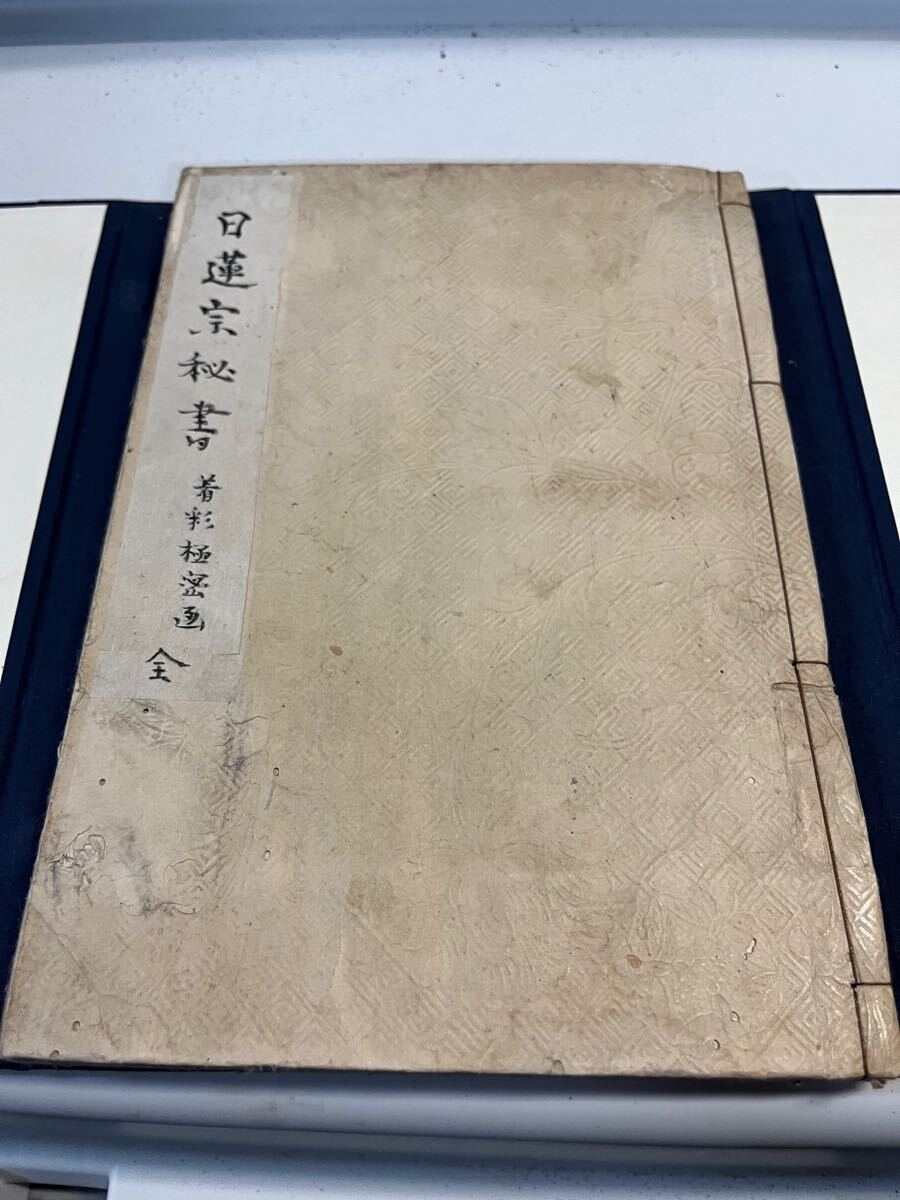 日蓮宗秘書
着彩極密画
全